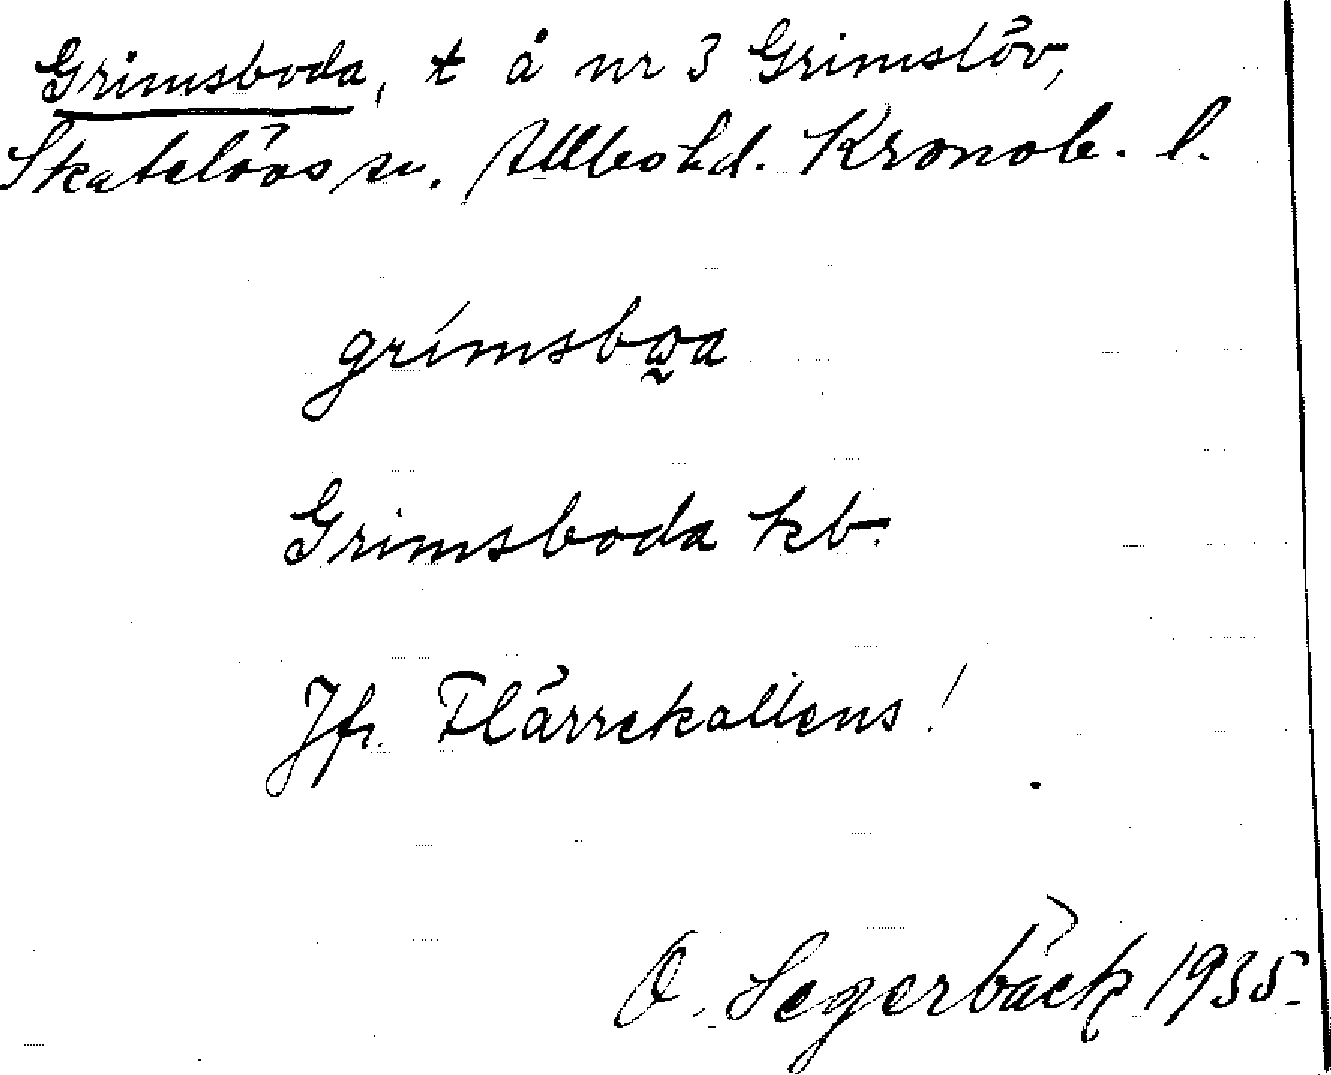 Grimsboda, t å nr 3 Grimslöv,
Skatelövs sn. Allbo hd. Kronob. l.
grimsboa
Grimsboda kb.
Jfr. Flärrekallens!
O. Segerbäck 1935.